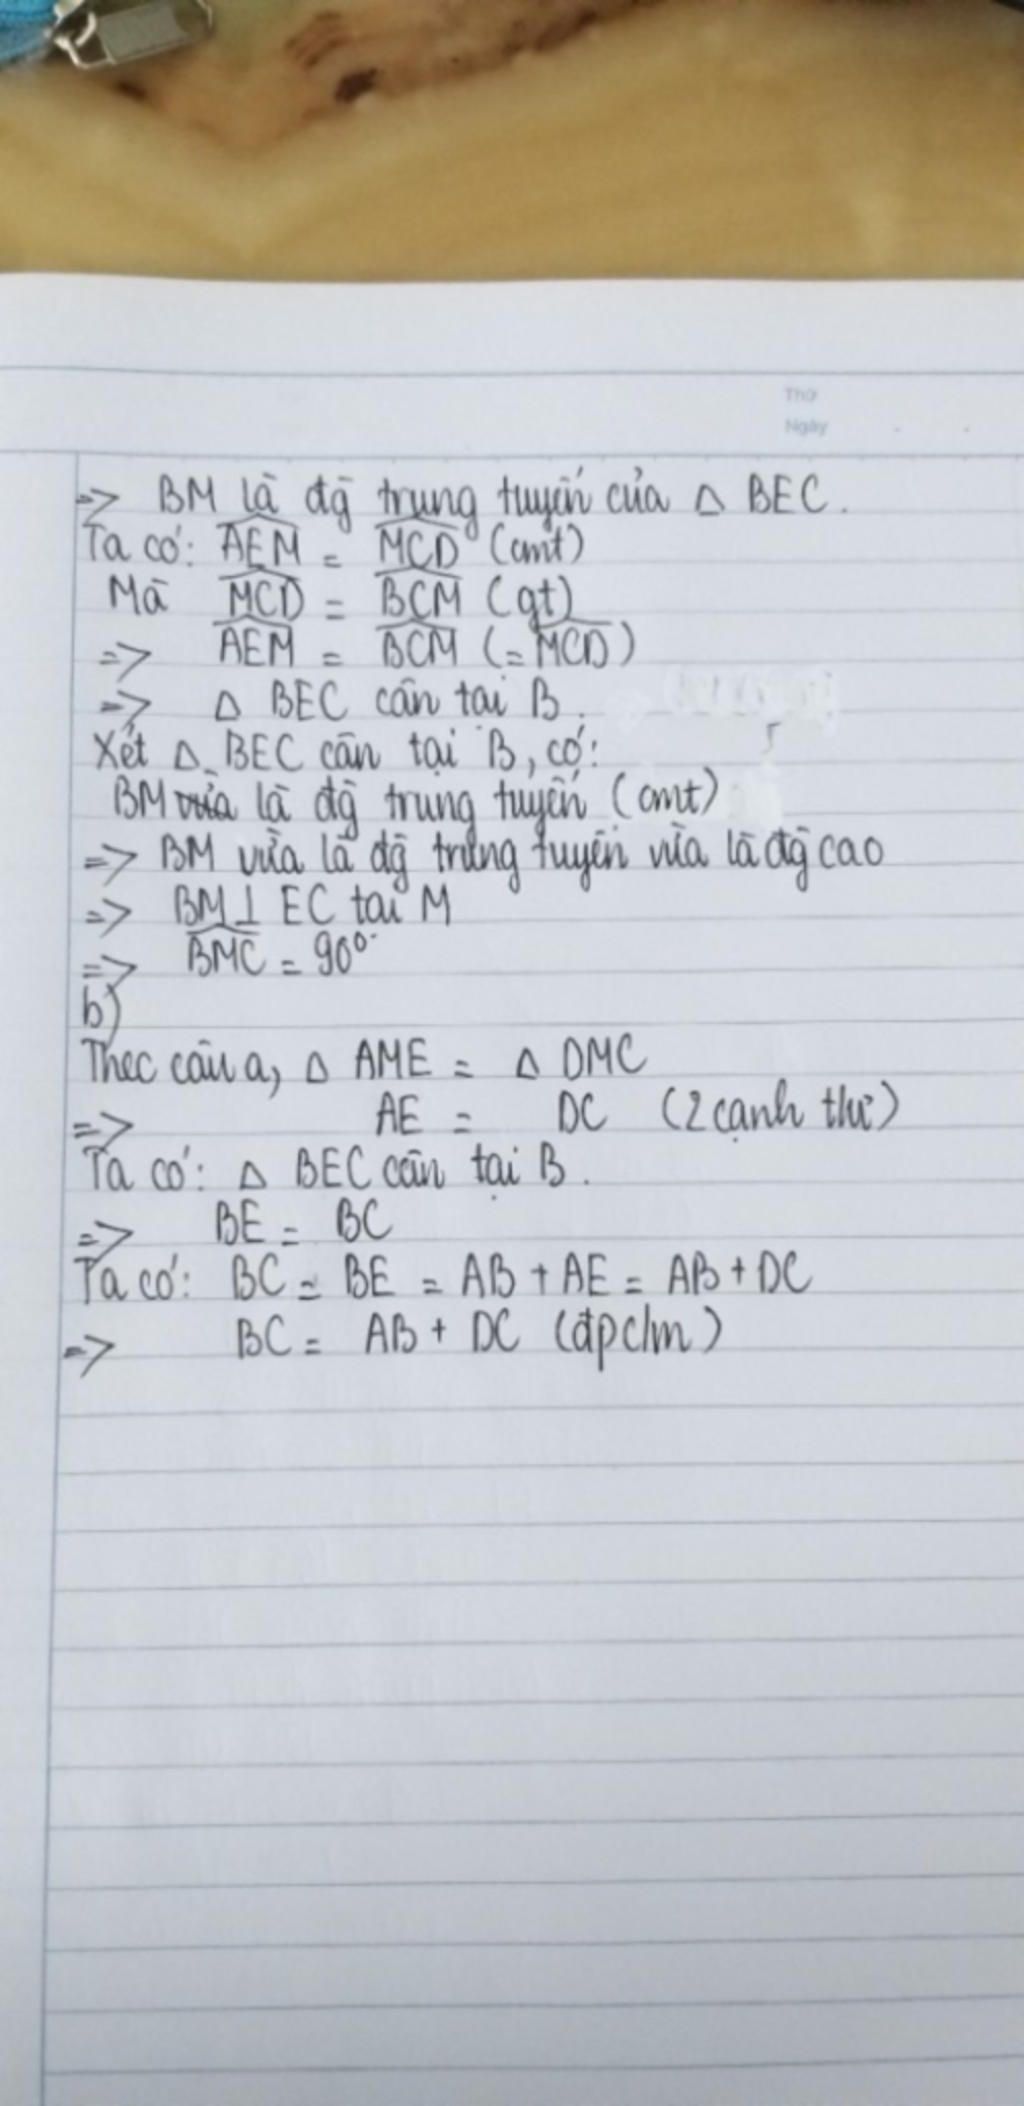 Thứ
Ngày
=> BM là đg̀ trung tuyến của △ BEC.
Ta có: \widehat{AEM} = \widehat{MCD} (cmt)
Mà \widehat{MCD} = \widehat{BCM} (gt)
=> \widehat{AEM} = \widehat{BCM} (= \widehat{MCD})
=> △ BEC cân tại B.
Xét △ BEC cân tại B, có:
BM vừa là đg̀ trung tuyến (cmt)
=> BM vừa là đg̀ trung tuyến vừa là đg̀ cao
=> BM ⊥ EC tại M
=> \widehat{BMC} = 90°
b)
Theo câu a, △ AME = △ DMC
=> AE = DC (2 cạnh tư)
Ta có: △ BEC cân tại B.
=> BE = BC
Ta có: BC = BE = AB + AE = AB + DC
=> BC = AB + DC (đpc/m)